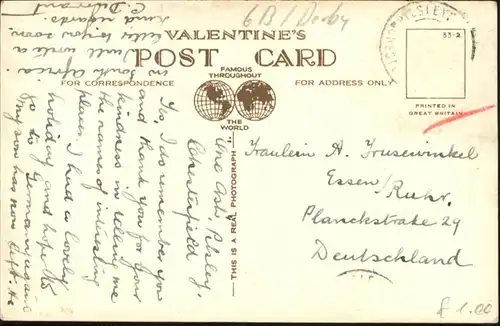 6B/Derby
VALENTINE'S
POST CARD
FAMOUS
THROUGHOUT
THE
WORLD
FOR CORRESPONDENCE
FOR ADDRESS ONLY
33-2
PRINTED IN
GREAT BRITAIN
THIS IS A REAL PHOTOGRAPH
Fräulein A. Frusewinkel
Essen/
Ruhr.
Planckstraße 29
Deutschland
£1.00
One Ash, Pilsley,
Chesterfield.
Yes, I do remember you
and thank you for your
kindness in telling me
the names of interesting
places. I had a lovely
holiday and hope to
go to Germany again
My son has now left. He
in South Africa.
I will write a
letter to you soon.
Kind regards